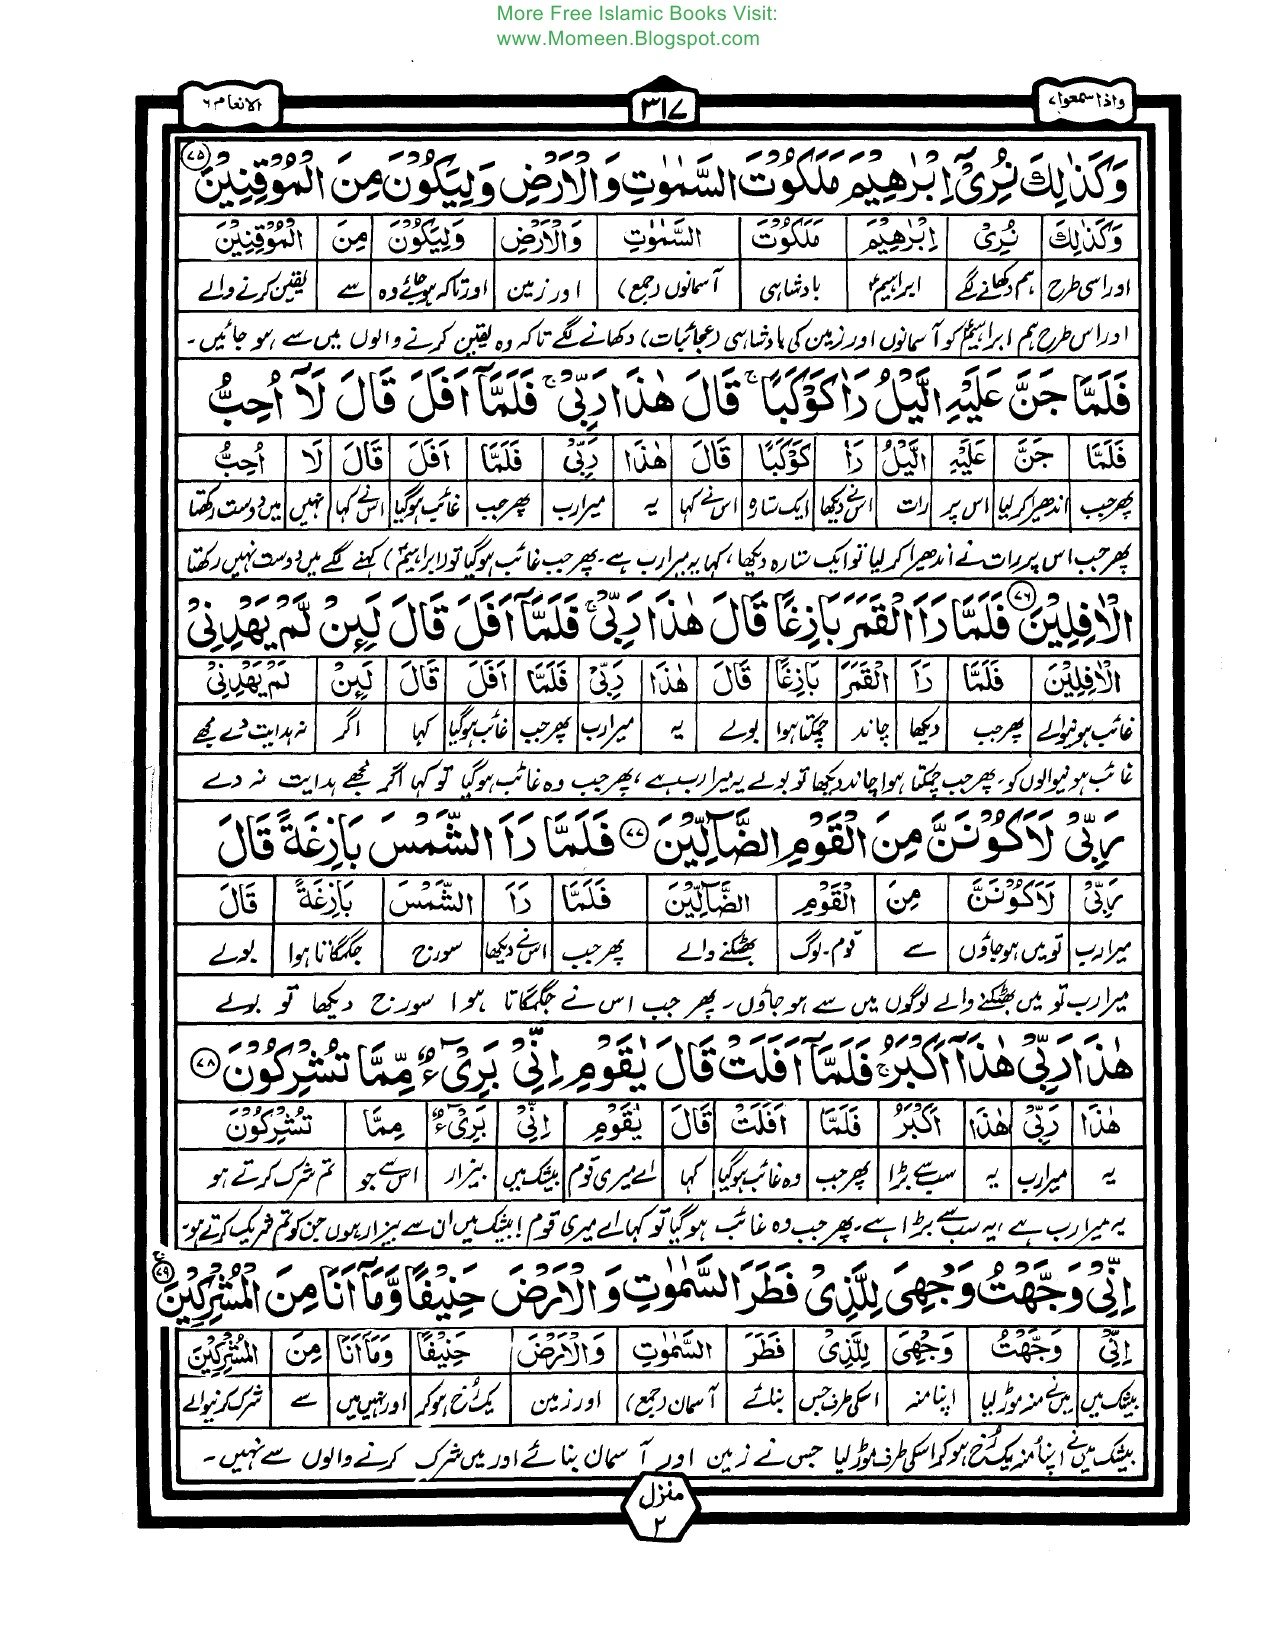 More Free Islamic Books Visit:
www.Momeen.Blogspot.com
واذا سمعوا ۷
۳۱۷
الانعام ۶
وَكَذٰلِكَ نُرِیْۤ اِبْرٰهِیْمَ مَلَكُوْتَ السَّمٰوٰتِ وَالْاَرْضِ وَلِیَكُوْنَ مِنَ الْمُوْقِنِیْنَ ۷۵
وَكَذٰلِكَ نُرِیْۤ اِبْرٰهِیْمَ مَلَكُوْتَ السَّمٰوٰتِ وَالْاَرْضِ وَلِیَكُوْنَ مِنَ الْمُوْقِنِیْنَ
اور اسی طرح ہم دکھانے لگے ابراہیمؑ بادشاہی آسمانوں (جمع) اور زمین اور تاکہ ہو جائے وہ سے یقین کرنے والے
اور اس طرح ہم ابراہیمؑ کو آسمانوں اور زمین کی بادشاہی (عجائبات) دکھانے لگے تاکہ وہ یقین کرنے والوں میں سے ہو جائیں۔
فَلَمَّا جَنَّ عَلَیْهِ الَّیْلُ رَاٰ كَوْكَبًا ۚ قَالَ هٰذَا رَبِّیْ ۚ فَلَمَّاۤ اَفَلَ قَالَ لَاۤ اُحِبُّ
فَلَمَّا جَنَّ عَلَیْهِ الَّیْلُ رَاٰ كَوْكَبًا قَالَ هٰذَا رَبِّیْ فَلَمَّا اَفَلَ قَالَ لَا اُحِبُّ
پھر جب اندھیرا کر لیا اس پر رات اس نے دیکھا ایک ستارہ اس نے کہا یہ میرا رب پھر جب غائب ہو گیا اس نے کہا نہیں میں دوست رکھتا
پھر جب اس پر رات نے اندھیرا کر لیا تو ایک ستارہ دیکھا، کہا یہ میرا رب ہے۔ پھر جب غائب ہو گیا تو (ابراہیمؑ) کہنے لگے میں دوست نہیں رکھتا
الْاٰفِلِیْنَ ۷۶ فَلَمَّا رَاَ الْقَمَرَ بَازِغًا قَالَ هٰذَا رَبِّیْ ۚ فَلَمَّاۤ اَفَلَ قَالَ لَىِٕنْ لَّمْ یَهْدِنِیْ
الْاٰفِلِیْنَ فَلَمَّا رَاَ الْقَمَرَ بَازِغًا قَالَ هٰذَا رَبِّیْ فَلَمَّا اَفَلَ قَالَ لَىِٕنْ لَمْ یَهْدِنِیْ
غائب ہونیوالے پھر جب دیکھا چاند چمکتا ہوا بولے یہ میرا رب پھر جب غائب ہو گیا کہا اگر نہ ہدایت دے مجھے
غائب ہونیوالوں کو۔ پھر جب چمکتا ہوا چاند دیکھا تو بولے یہ میرا رب ہے، پھر جب وہ غائب ہو گیا تو کہا اگر مجھے ہدایت نہ دے
رَبِّیْ لَاَكُوْنَنَّ مِنَ الْقَوْمِ الضَّآلِّیْنَ ۷۷ فَلَمَّا رَاَ الشَّمْسَ بَازِغَةً قَالَ
رَبِّیْ لَاَكُوْنَنَّ مِنَ الْقَوْمِ الضَّآلِّیْنَ فَلَمَّا رَاَ الشَّمْسَ بَازِغَةً قَالَ
میرا رب تو میں ہو جاؤں سے قوم۔ لوگ بھٹکنے والے پھر جب اس نے دیکھا سورج جگمگاتا ہوا بولے
میرا رب تو میں بھٹکنے والے لوگوں میں سے ہو جاؤں۔ پھر جب اس نے جگمگاتا ہوا سورج دیکھا تو بولے
هٰذَا رَبِّیْ هٰذَاۤ اَكْبَرُ ۚ فَلَمَّاۤ اَفَلَتْ قَالَ یٰقَوْمِ اِنِّیْ بَرِیْٓءٌ مِّمَّا تُشْرِكُوْنَ ۷۸
هٰذَا رَبِّیْ هٰذَا اَكْبَرُ فَلَمَّا اَفَلَتْ قَالَ یٰقَوْمِ اِنِّیْ بَرِیْٓءٌ مِمَّا تُشْرِكُوْنَ
یہ میرا رب یہ سب سے بڑا پھر جب وہ غائب ہو گیا کہا اے میری قوم بیشک میں بیزار اس سے جو تم شرک کرتے ہو
یہ میرا رب ہے، یہ سب سے بڑا ہے۔ پھر جب وہ غائب ہو گیا تو کہا اے میری قوم! بیشک میں ان سے بیزار ہوں جن کو تم شریک کرتے ہو۔
اِنِّیْ وَجَّهْتُ وَجْهِیَ لِلَّذِیْ فَطَرَ السَّمٰوٰتِ وَالْاَرْضَ حَنِیْفًا وَّمَاۤ اَنَا مِنَ الْمُشْرِكِیْنَ ۷۹
اِنِّیْ وَجَّهْتُ وَجْهِیَ لِلَّذِیْ فَطَرَ السَّمٰوٰتِ وَالْاَرْضَ حَنِیْفًا وَمَاۤ اَنَا مِنَ الْمُشْرِكِیْنَ
بیشک میں میں نے منہ موڑ لیا اپنا منہ اسکی طرف جس بنائے آسمان (جمع) اور زمین یک رُخ ہو کر اور نہیں میں سے شرک کرنیوالے
بیشک میں نے اپنا منہ یک رُخ ہو کر اسکی طرف موڑ لیا جس نے زمین اور آسمان بنائے اور میں شرک کرنے والوں سے نہیں۔
منزل ۲